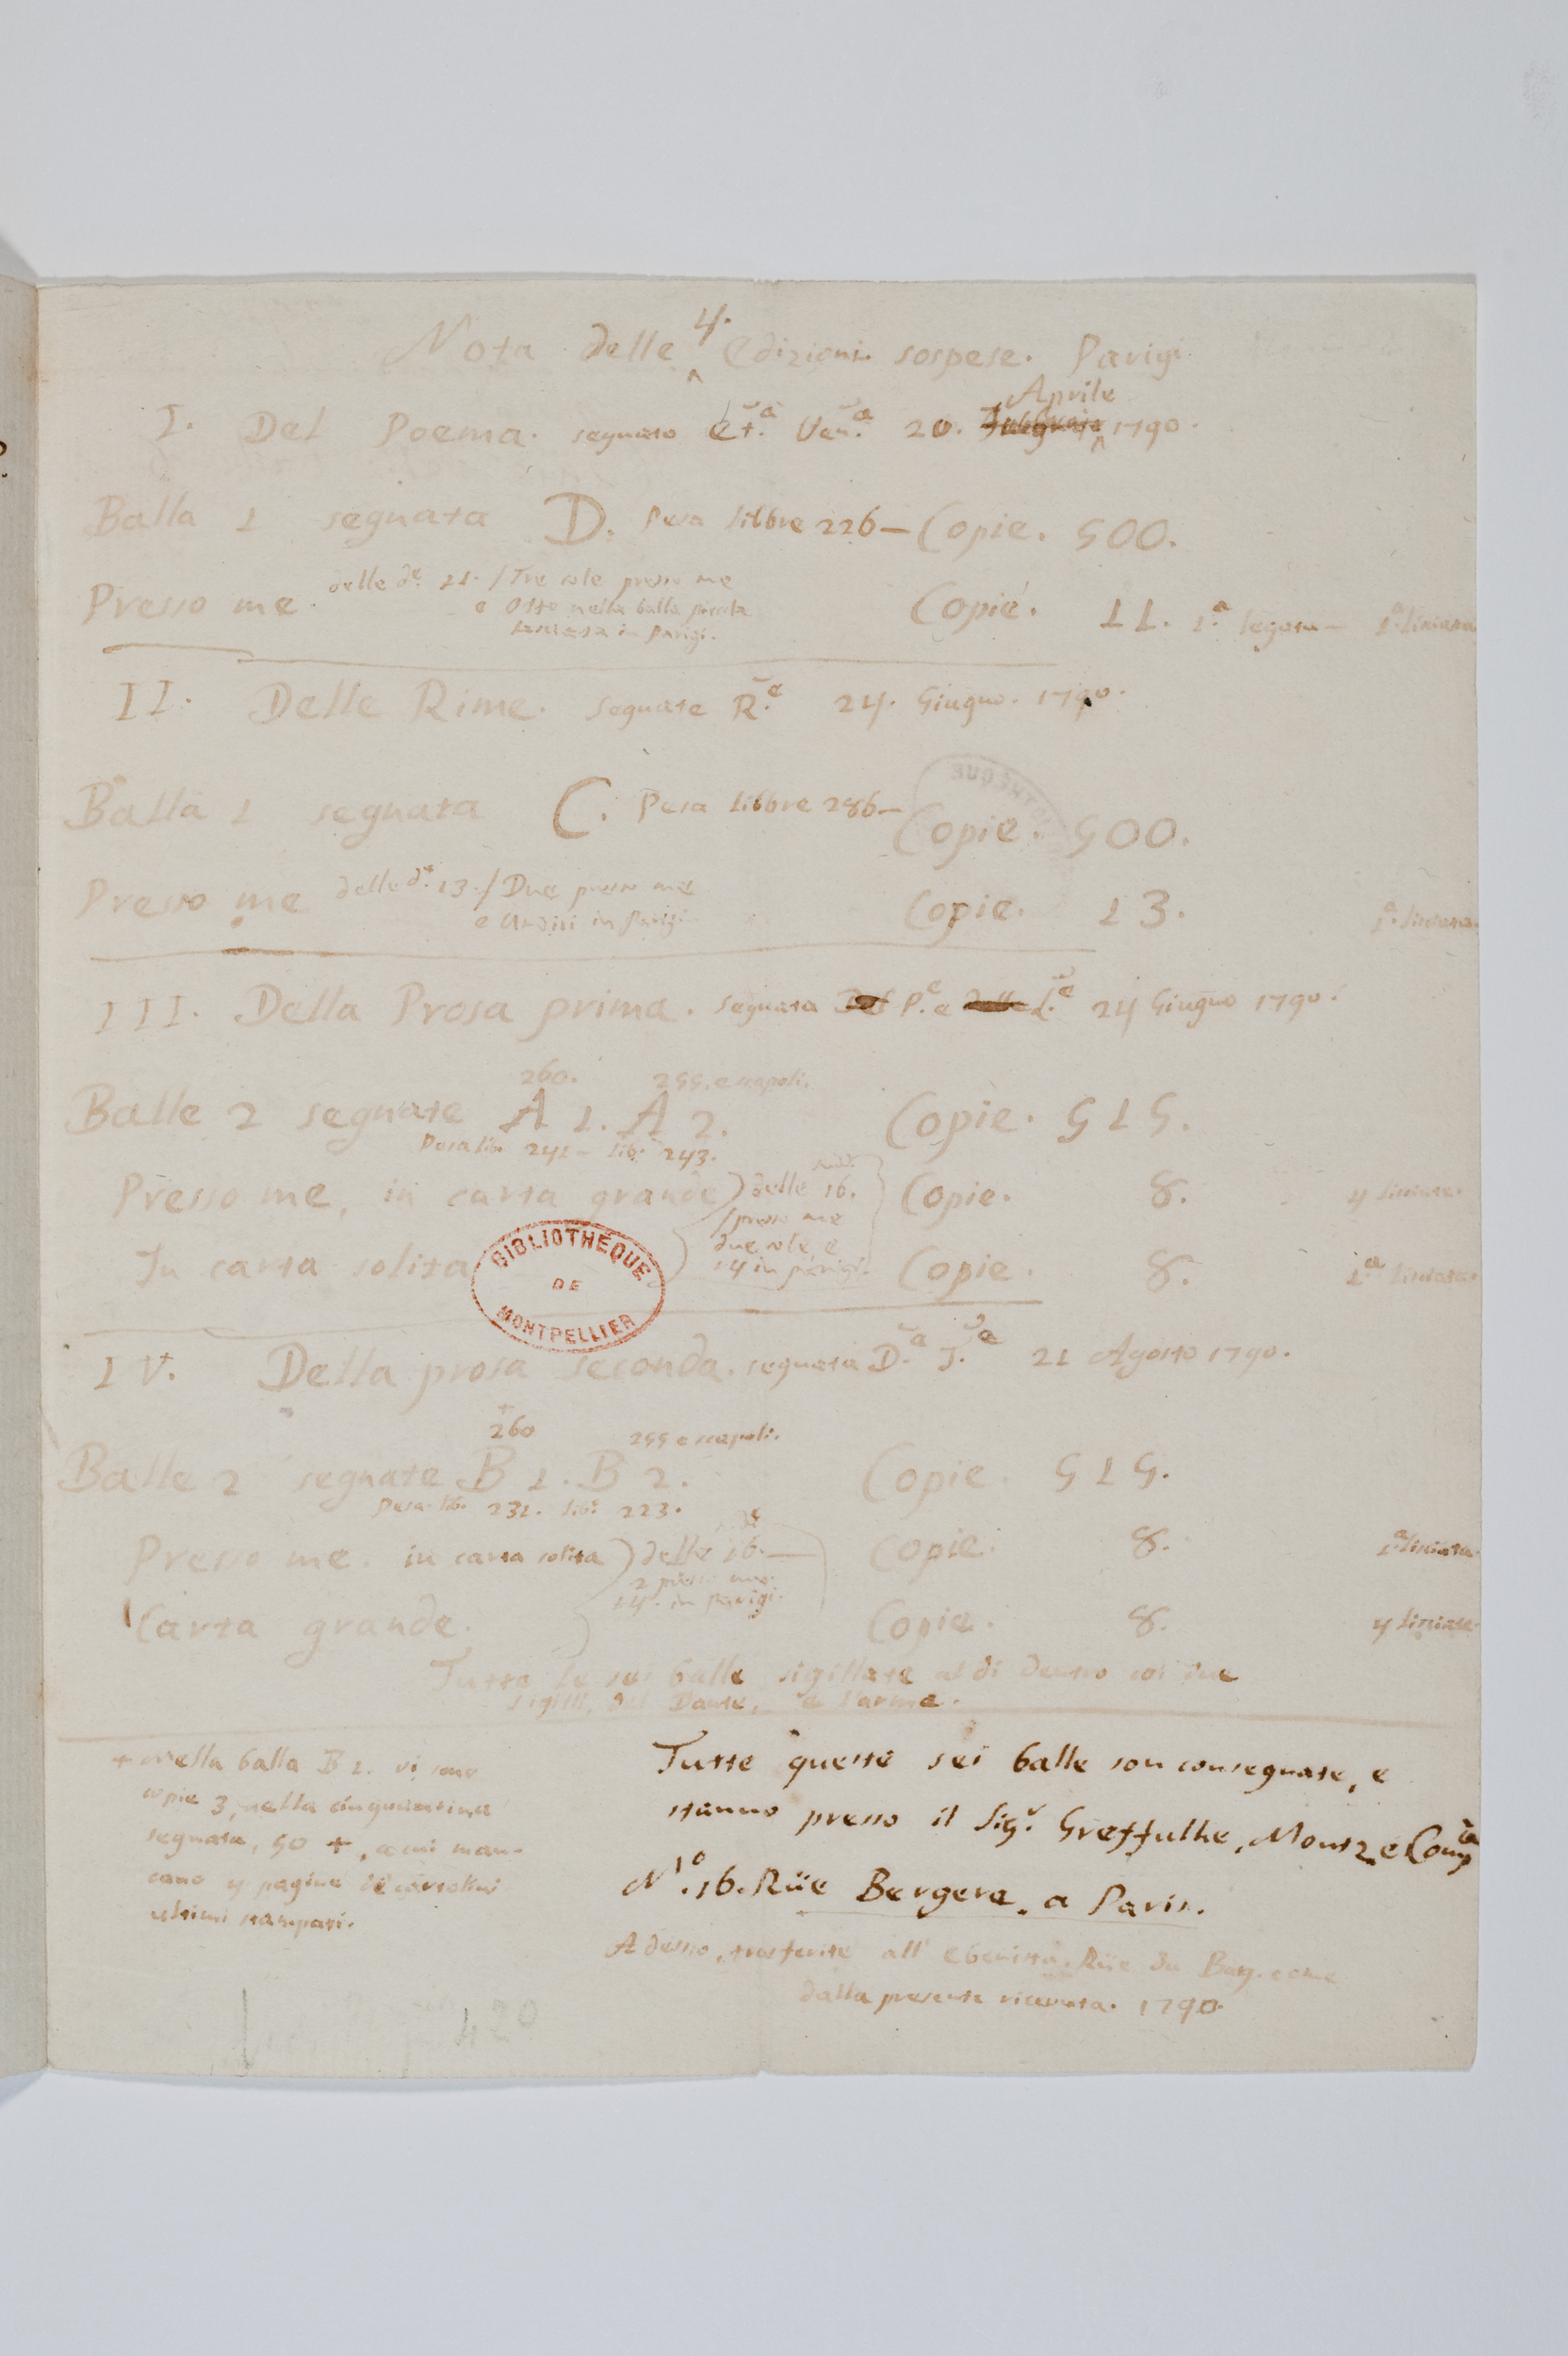 Nota delle 4. Edizioni sospese. Parigi
I. Del Poema. segnato Et.ã Ven.ã 20. Aprile 1790.
Balla 1 segnata D. Pesa libbre 226— Copie. 500.
Presso me. delle d.e 11. / Tre sole presso me
e Otto nella balla piccola
lasciata in Parigi.
Copie. 11. 1.a legata — 1.a liniata
II. Delle Rime. segnate R.e 24. Giugno. 1790.
Balla 1 segnata C. Pesa libbre 286— Copie. 500.
Presso me delle d.e 13. / Due presso me
e Undici in Parigi.
Copie. 13. 1.a liniata.
III. Della Prosa prima. segnata P.e e L.e 24 Giugno 1790.
260. 255. e scapoli.
Balle 2 segnate A 1. A 2. Copie. 515.
Pesa lib. 241 — lib.e 243.
Presso me, in carta grande) delle 16. Copie. 8. 4 liniate.
/ presso me
due sole, e
14 in parigi.
In carta solita Copie. 8. 1.a liniata.
BIBLIOTHÈQUE
DE
MONTPELLIER
IV. Della prosa seconda. segnata D.ã T.e 21 Agosto 1790.
+
260 255 e scapoli.
Balle 2 segnate B 1. B 2. Copie. 515.
Pesa lib. 231. lib.e 223.
Presso me. in carta solita) delle 16.— Copie. 8. 1.a liniata.
2 presso me.
14. in parigi.
Carta grande. Copie. 8. 4 liniate.
Tutte le sei balle sigillate al di dentro coi due
sigilli, del Dante, e l'arme.
+ Nella balla B 1. vi sono
copie 3, nella cinquantina
segnata, 50 +, a cui man-
cano 4 pagine di cartolini
ultimi stampati.
Tutte queste sei balle son consegnate, e
stanno presso il Sig.r Greffulhe, Montz e Comp.ã
N.o 16. Rüe Bergere, a Paris.
Adesso, trasferite all' Ebenista, Rüe du Bacq. come
dalla presente ricevuta. 1790.